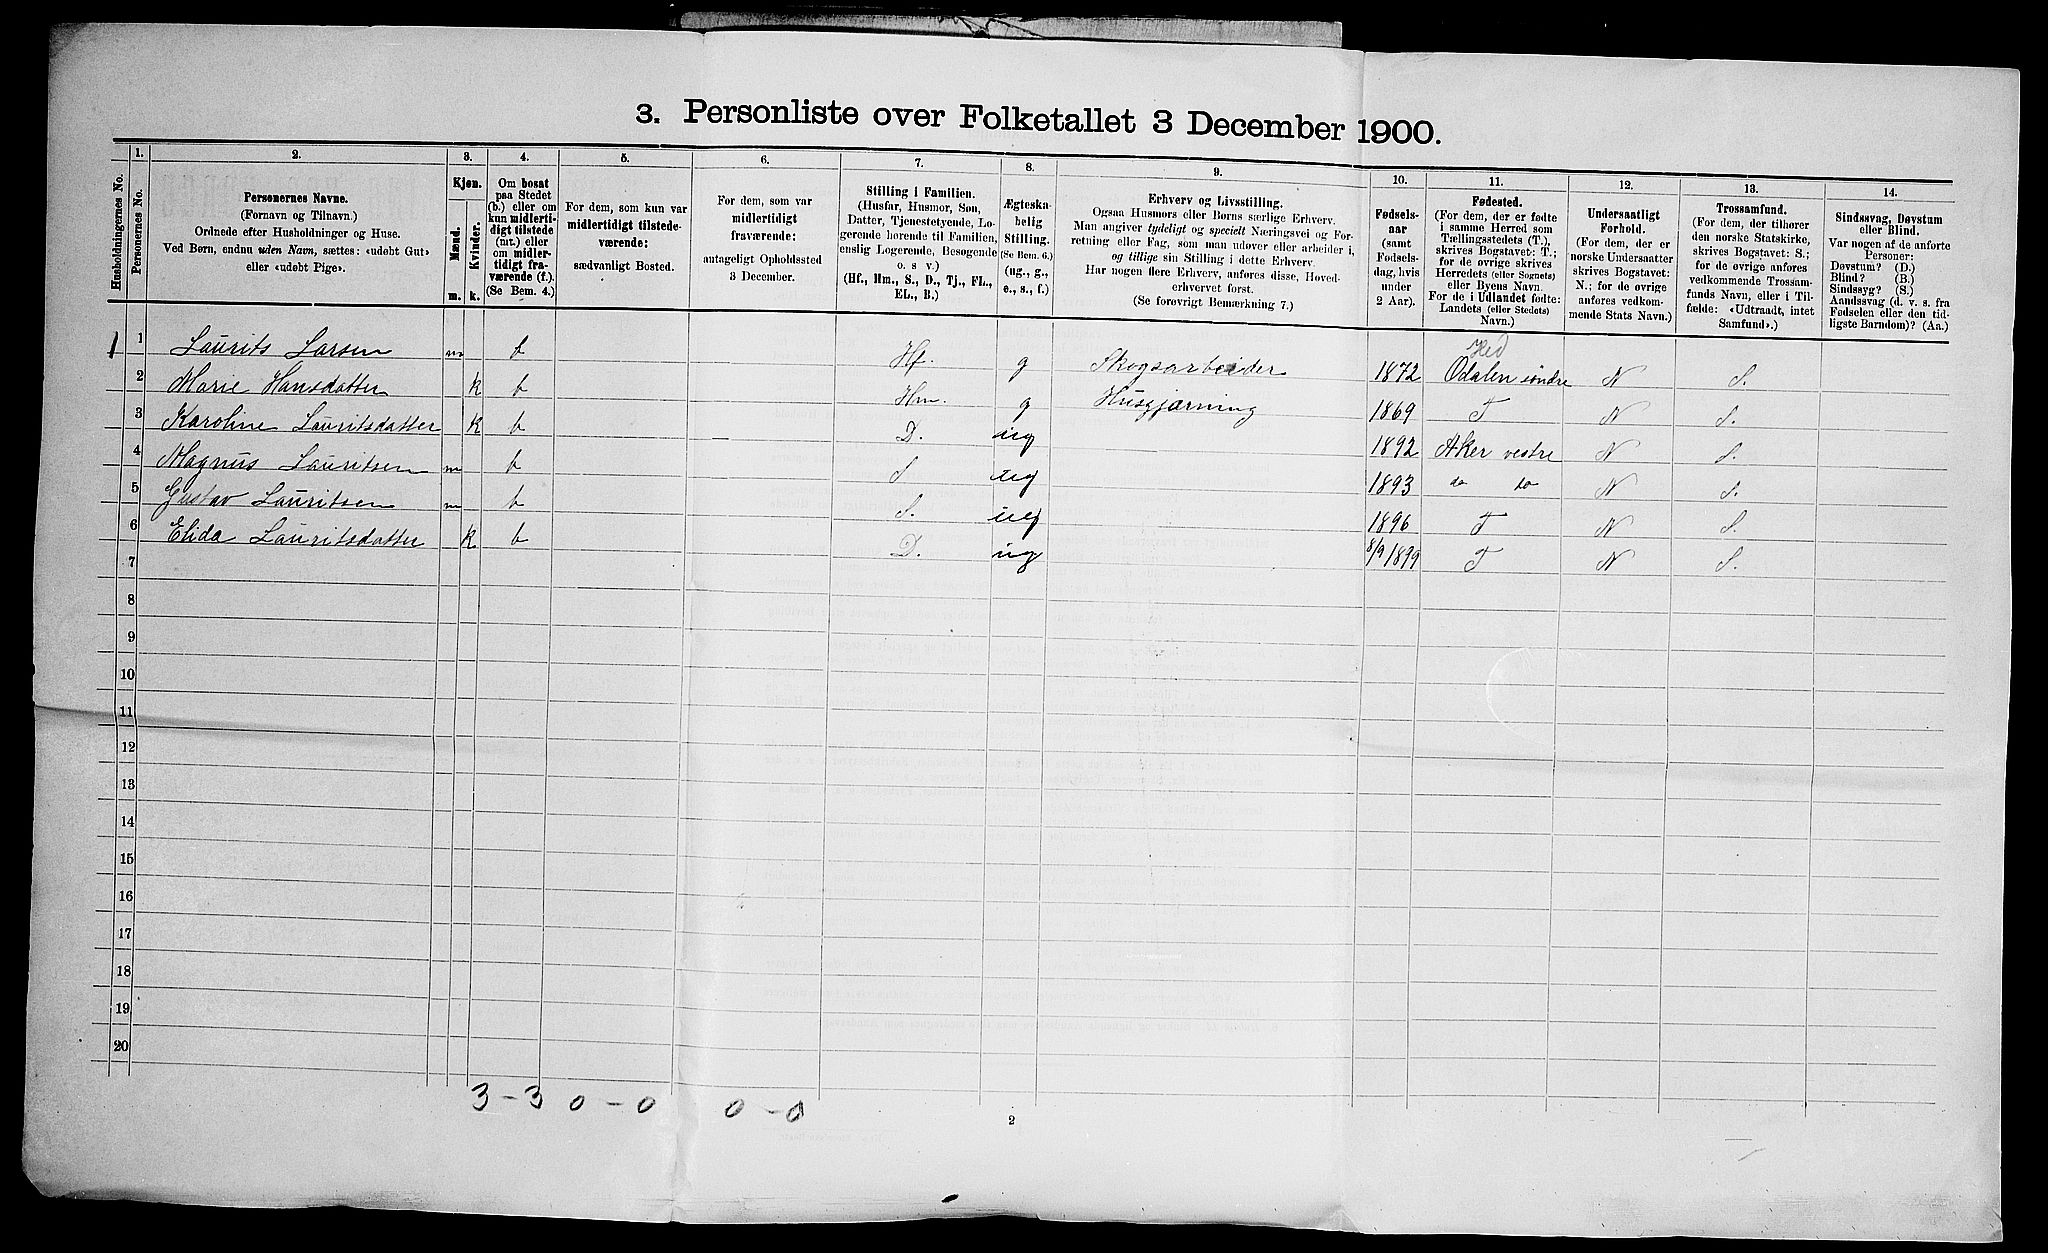 3. Personliste over Folketallet 3 December 1900.
Husholdningernes No.
1.
Personernes No.
2.
Personernes Navne.
(Fornavn og Tilnavn.)
Ordnede efter Husholdninger og Huse.
Ved Børn, endnu uden Navn, sættes: «udøbt Gut»
eller «udøbt Pige».
3.
Kjøn.
Mænd.
Kvinder.
m.
k.
4.
Om bosat
paa Stedet
(b.) eller om
kun midlerti-
digt tilstede
(mt.) eller
om midler-
tidigt fra-
værende (f.).
(Se Bem. 4.)
5.
For dem, som kun var
midlertidigt tilstede-
værende:
sædvanligt Bosted.
6.
For dem, som var
midlertidigt
fraværende:
antageligt Opholdssted
3 December.
7.
Stilling i Familien.
(Husfar, Husmor, Søn,
Datter, Tjenestetyende, Lo-
gerende hørende til Familien,
enslig Logerende, Besøgende
o. s v.)
(Hf., Hm., S., D., Tj., FL.,
EL., B.)
8.
Ægteska-
belig
Stilling.
(Se Bem. 6.)
(ug., g.,
e., s., f.)
9.
Erhverv og Livsstilling.
Ogsaa Husmors eller Børns særlige Erhverv.
Man angiver tydeligt og specielt Næringsvei og For-
retning eller Fag, som man udøver eller arbeider i,
og tillige sin Stilling i dette Erhverv.
Har nogen flere Erhverv, anføres disse, Hoved-
erhvervet først.
(Se forøvrigt Bemærkning 7.)
10.
Fødsels-
aar
(samt
Fødsels-
dag, hvis
under
2 Aar).
11.
Fødested.
(For dem, der er fødte
i samme Herred som
Tællingsstedets (T.),
skrives Bogstavet: T.;
for de øvrige skrives
Herredets (eller Sognets)
eller Byens Navn.
For de i Udlandet fødte:
Landets (eller Stedets)
Navn.)
12.
Undersaatligt
Forhold.
(For dem, der er
norske Undersaatter
skrives Bogstavet:
N.; for de øvrige
anføres vedkom-
mende Stats Navn.)
13.
Trossamfund.
(For dem, der tilhører
den norske Statskirke,
skrives Bogstavet: S.;
for de øvrige anføres
vedkommende Trossam-
funds Navn, eller i Til-
fælde: «Udtraadt, intet
Samfund».)
14.
Sindssvag, Døvstum
eller Blind.
Var nogen af de anførte
Personer:
Døvstum? (D.)
Blind? (B.)
Sindssyg? (S.)
Aandssvag (d. v. s. fra
Fødselen eller den tid-
ligste Barndom)? (Aa.)
Hed
1 1 Laurits Larsen m b Hf. g Skogsarbeider 1872 Odalen søndre N S.
2 Marie Hansdatter k b Hm. g Husgjærning 1869 T N S.
3 Karoline Lauritsdatter k b D. ug 1892 Aker vestre N S.
4 Magnus Lauritsen m b S ug 1893 do do N S.
5 Gustav Lauritsen m b S. ug 1896 T N S.
6 Elida Lauritsdatter k b D. ug 8/9 1899 T N S.
7
8
9
10
11
12
13
14
15
16
17
18
19
20
3 - 3 0 - 0 0 - 0
2